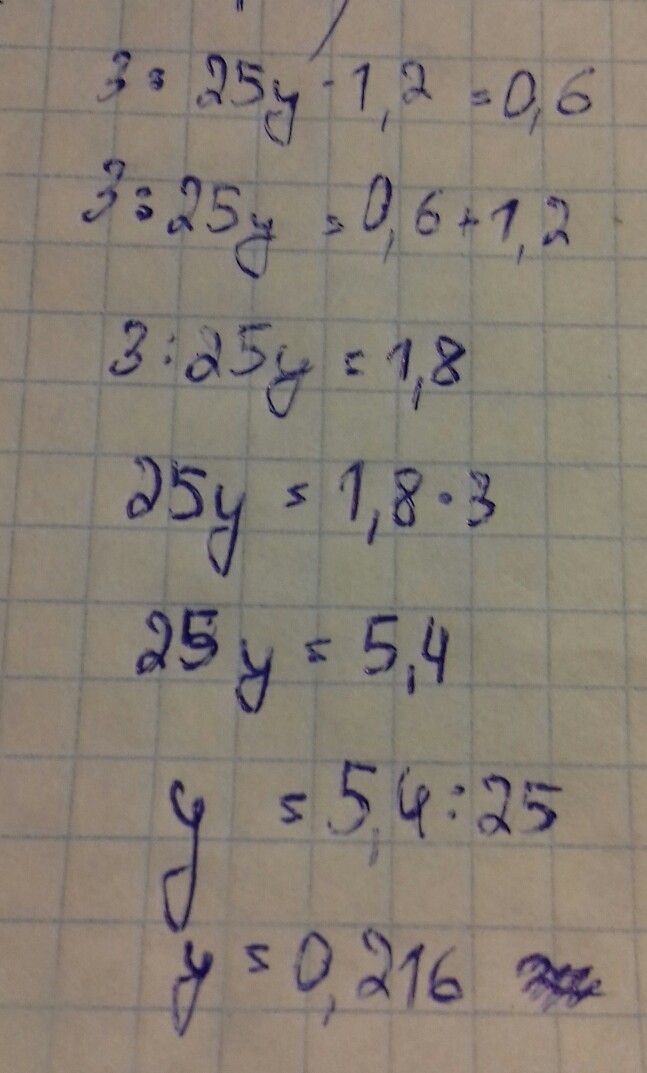 3:25y-1,2=0,6
3:25y=0,6+1,2
3:25y=1,8
25y=1,8·3
25y=5,4
y=5,4:25
y=0,216